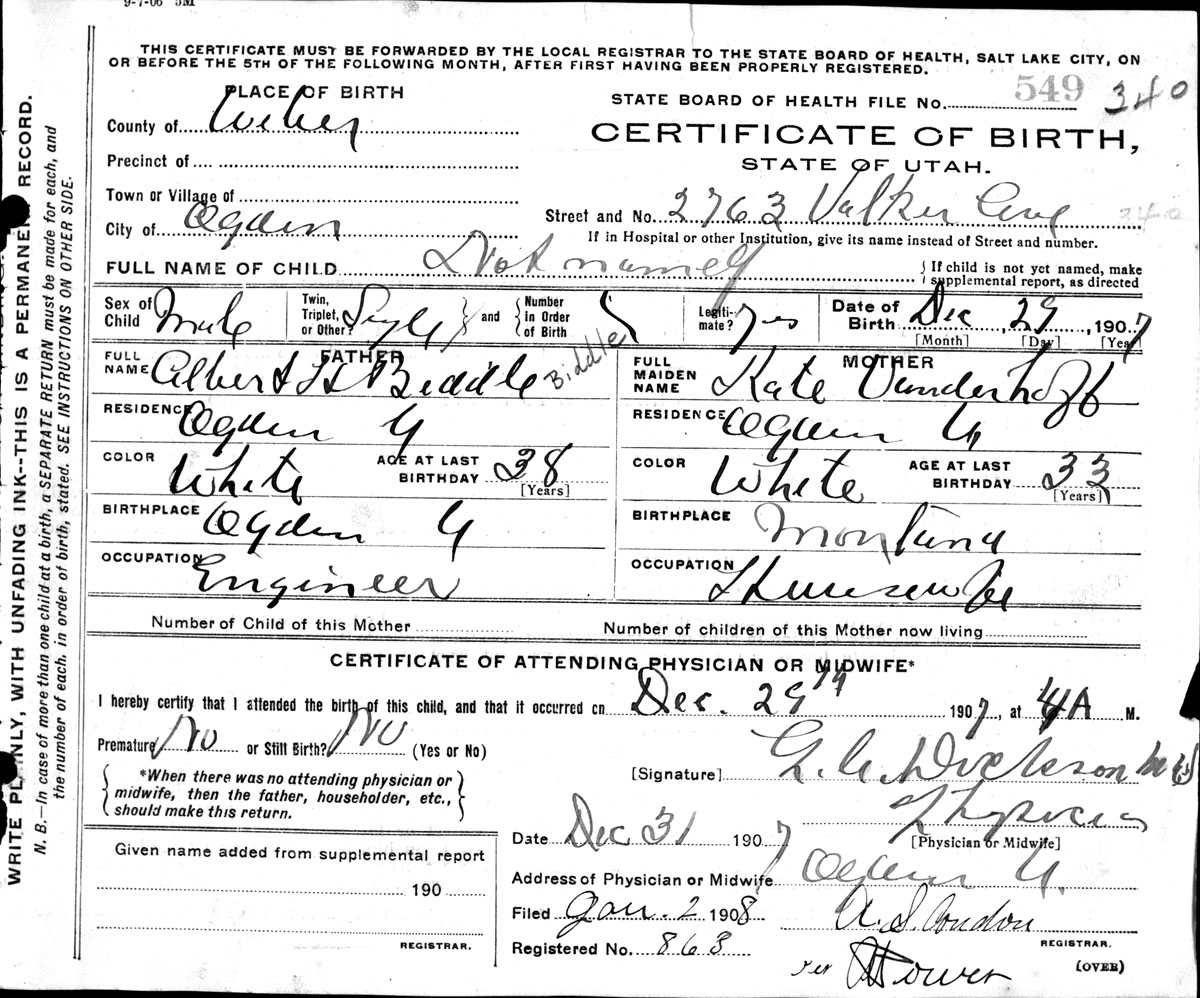 9-7-06 5M
THIS CERTIFICATE MUST BE FORWARDED BY THE LOCAL REGISTRAR TO THE STATE BOARD OF HEALTH, SALT LAKE CITY, ON
OR BEFORE THE 5TH OF THE FOLLOWING MONTH, AFTER FIRST HAVING BEEN PROPERLY REGISTERED.
PLACE OF BIRTH
STATE BOARD OF HEALTH FILE No. 549 340
County of Weber
CERTIFICATE OF BIRTH,
STATE OF UTAH.
Precinct of
Town or Village of
City of Ogden
Street and No. 2763 Walker Ave 340
If in Hospital or other Institution, give its name instead of Street and number.
FULL NAME OF CHILD Not named
If child is not yet named, make
supplemental report, as directed
Sex of Child Male
Twin, Triplet, or Other? Single
and
Number in Order of Birth
Legiti-mate? Yes
Date of Birth Dec 29, 1907
[Month] [Day] [Year]
FATHER
FULL NAME Albert H Biddle Biddle
RESIDENCE Ogden U
COLOR White AGE AT LAST BIRTHDAY 38
[Years]
BIRTHPLACE Ogden U
OCCUPATION Engineer
MOTHER
FULL MAIDEN NAME Kate Vanderhoff
RESIDENCE Ogden U
COLOR White AGE AT LAST BIRTHDAY 33
[Years]
BIRTHPLACE Montana
OCCUPATION Housewife
Number of Child of this Mother
Number of children of this Mother now living
CERTIFICATE OF ATTENDING PHYSICIAN OR MIDWIFE*
I hereby certify that I attended the birth of this child, and that it occurred on Dec. 29th 1907, at 4 A M.
Premature No or Still Birth? No (Yes or No)
*When there was no attending physician or
midwife, then the father, householder, etc.,
should make this return.
[Signature] Dickson MD
Physician
[Physician or Midwife]
Date Dec 31 1907
Address of Physician or Midwife Ogden U.
Filed Jan. 2 1908
A. S. Condon
REGISTRAR.
Registered No. 863
Per
(OVER)
Given name added from supplemental report
190
REGISTRAR.
WRITE PLAINLY, WITH UNFADING INK--THIS IS A PERMANENT RECORD.
N. B.—In case of more than one child at a birth, a SEPARATE RETURN must be made for each, and
the number of each, in order of birth, stated. SEE INSTRUCTIONS ON OTHER SIDE.